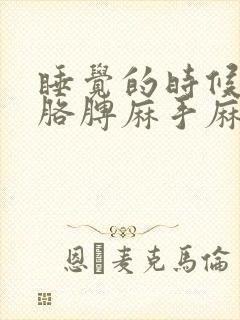 睡覺的時候
胳脾麻手麻
恩 麦克馬倫